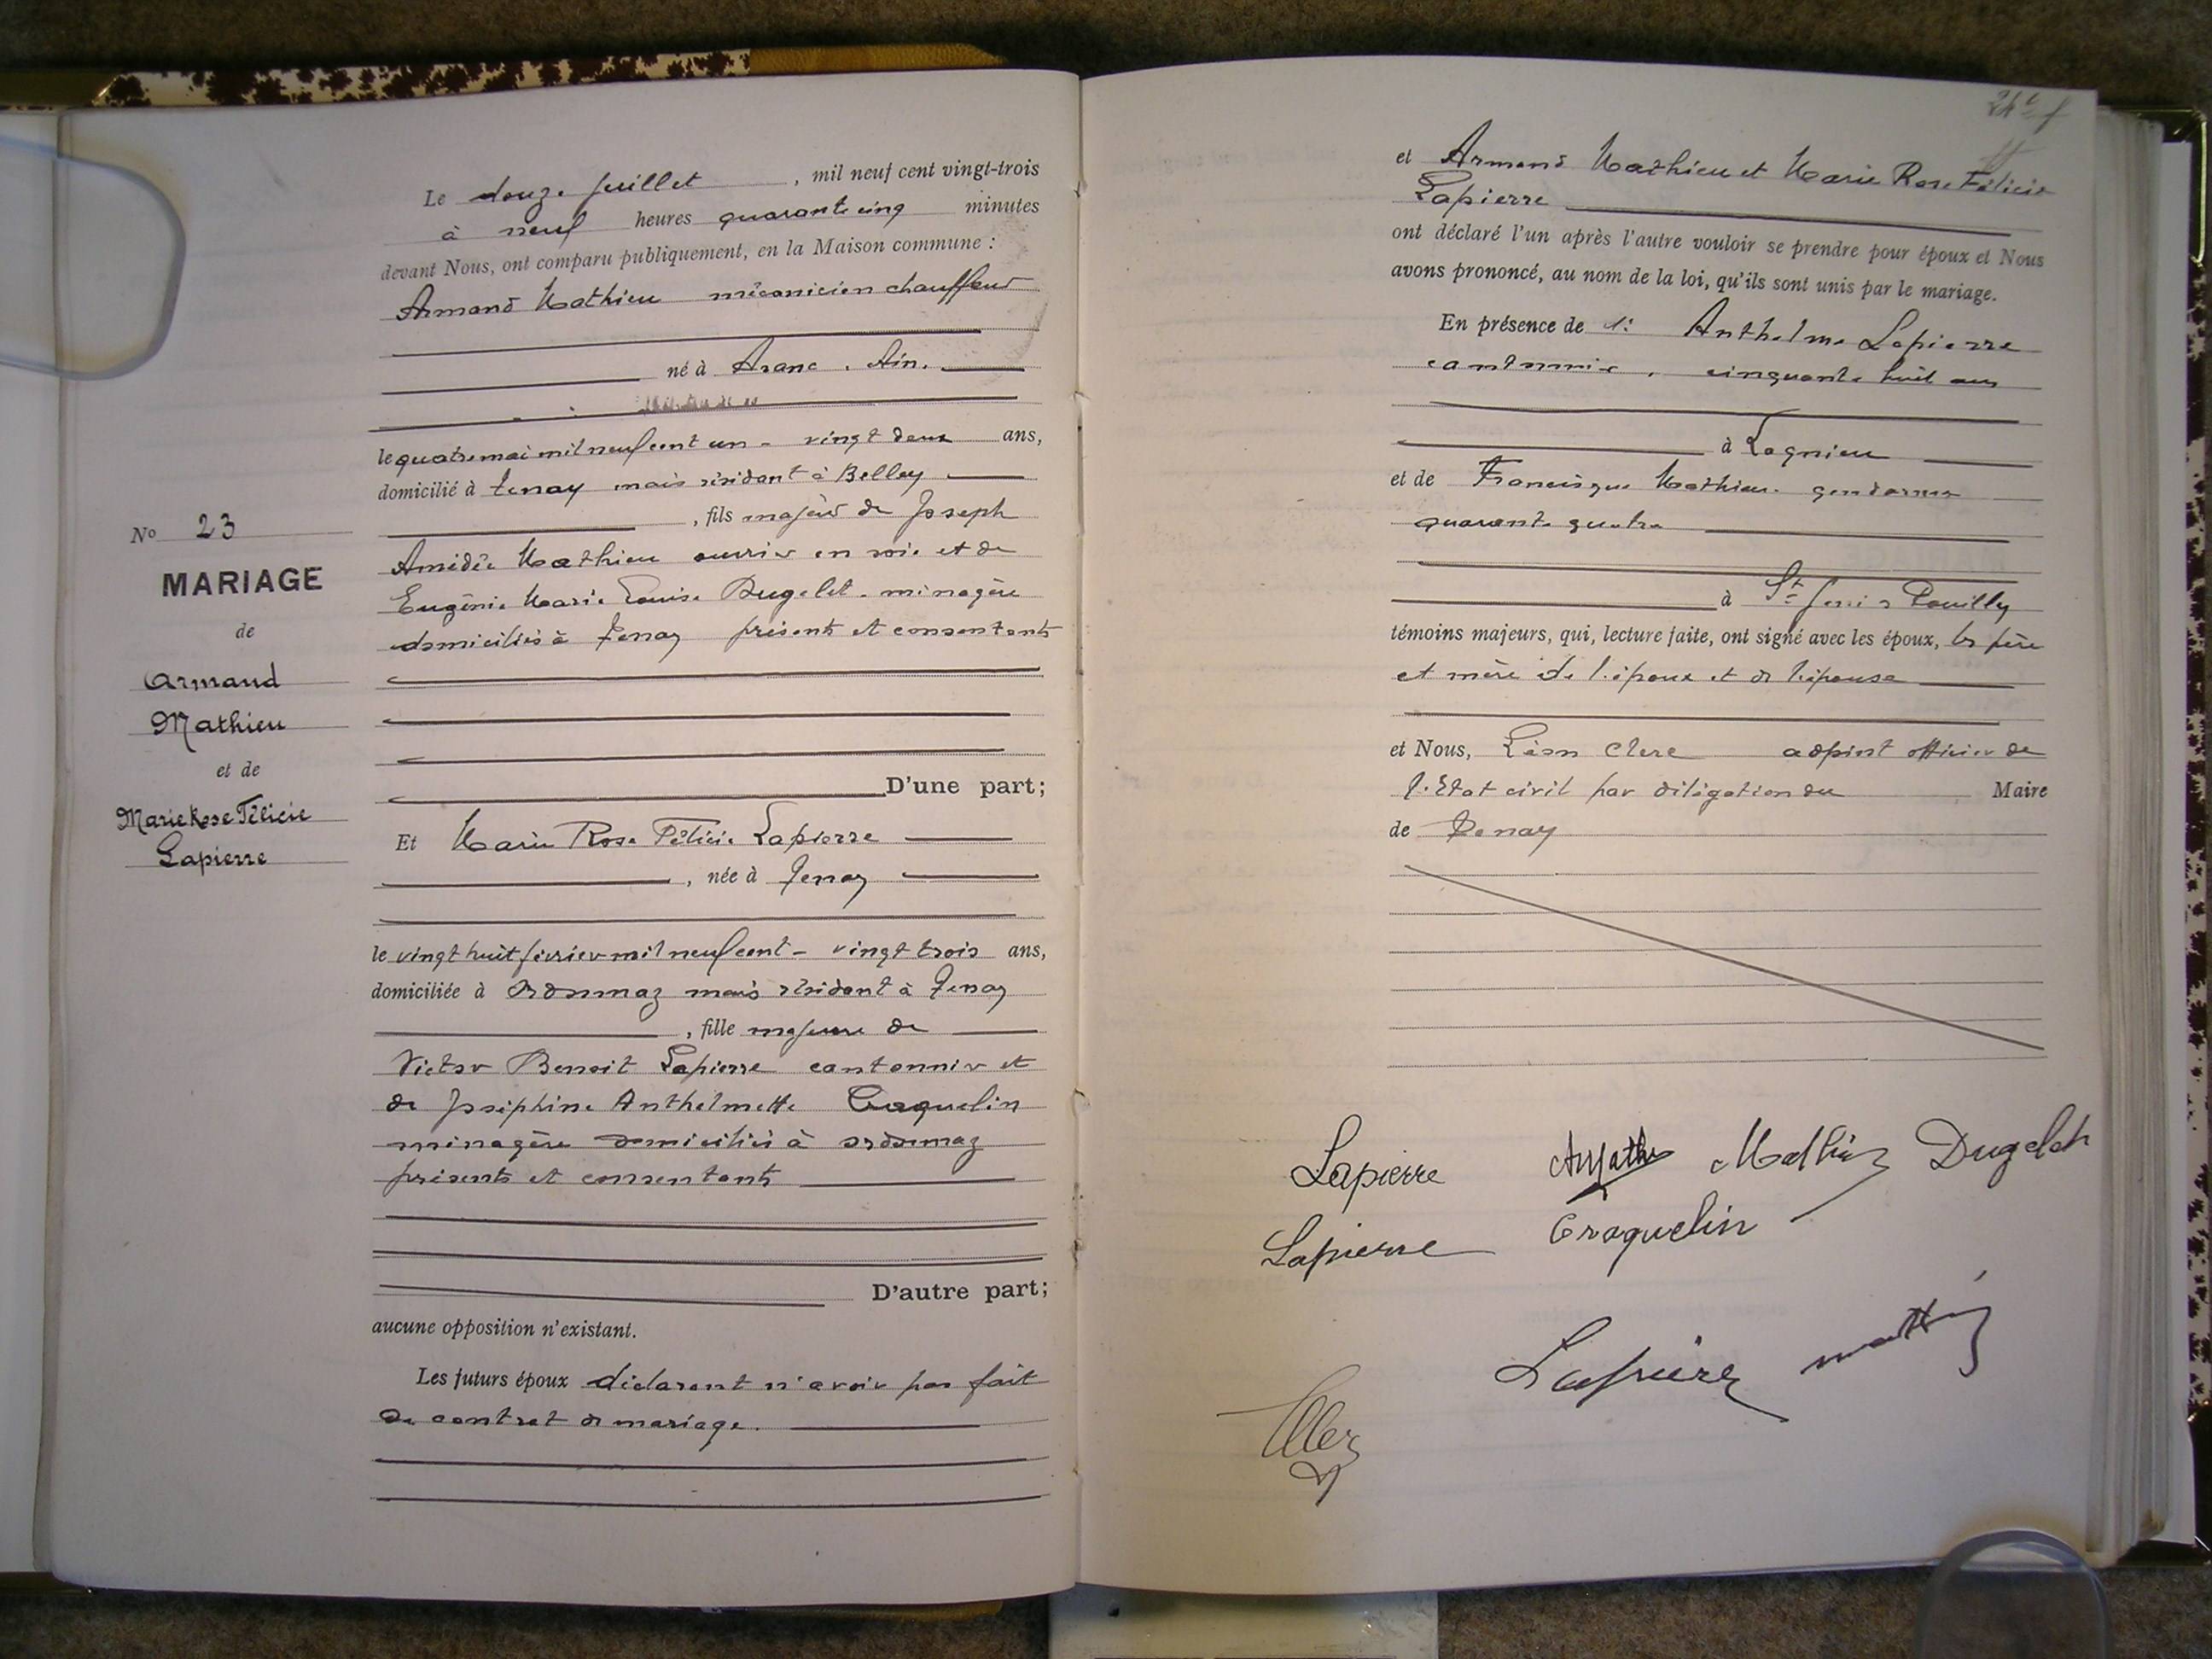 Le douze juillet , mil neuf cent vingt-trois
à neuf heures quarante cinq minutes
devant Nous, ont comparu publiquement, en la Maison commune :
Armand Mathieu mécanicien chauffeur
né à Aranc . Ain.
le quatre mai mil neuf cent un - vingt deux ans,
domicilié à Tenay mais résidant à Belley
, fils majeur de Joseph
Amédée Mathieu ouvrier en soie et de
Eugénie Marie Louise Dugelet - ménagère
domiciliés à Tenay présents et consentants
D'une part;
Et Marie Rose Félicie Lapierre
, née à Tenay
le vingt huit février mil neuf cent - vingt trois ans,
domiciliée à Ordonnaz mais résidant à Tenay
, fille majeure de
Victor Benoit Lapierre cantonnier et
de Joséphine Anthelmette Craquelin
ménagère domiciliés à Ordonnaz
présents et consentants
D'autre part;
aucune opposition n'existant.
Les futurs époux déclarent n'avoir pas fait
de contrat de mariage.
No 23
MARIAGE
de
Armand
Mathieu
et de
Marie Rose Félicie
Lapierre
et Armand Mathieu et Marie Rose Félicie
Lapierre
ont déclaré l'un après l'autre vouloir se prendre pour époux et Nous
avons prononcé, au nom de la loi, qu'ils sont unis par le mariage.
En présence de Anthelme Lapierre
cantonnier , cinquante huit ans
à Lagnieu
et de Francisque Mathieu. gendarme
quarante quatre
à St Genis Pouilly
témoins majeurs, qui, lecture faite, ont signé avec les époux, les père
et mère de l'époux et de l'épouse
et Nous, Léon Clerc adjoint officier de
l'Etat civil par délégation du Maire
de Tenay
Lapierre Mathieu Dugelet
Lapierre Craquelin
Lapierre